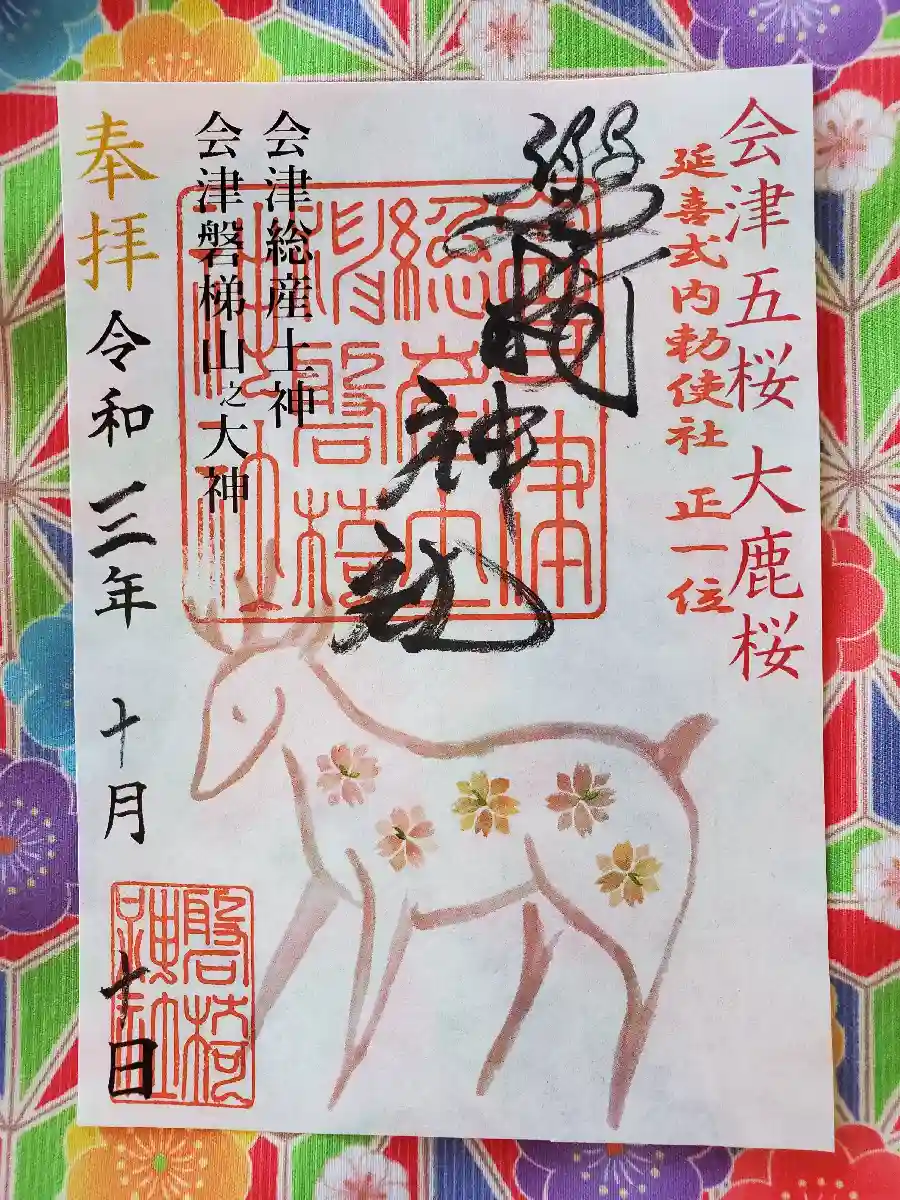 会津五桜 大鹿桜
延喜式内勅使社 正一位
磐椅神社
会津総産土神
会津磐梯山之大神
奉拝 令和三年 十月 十日
磐椅